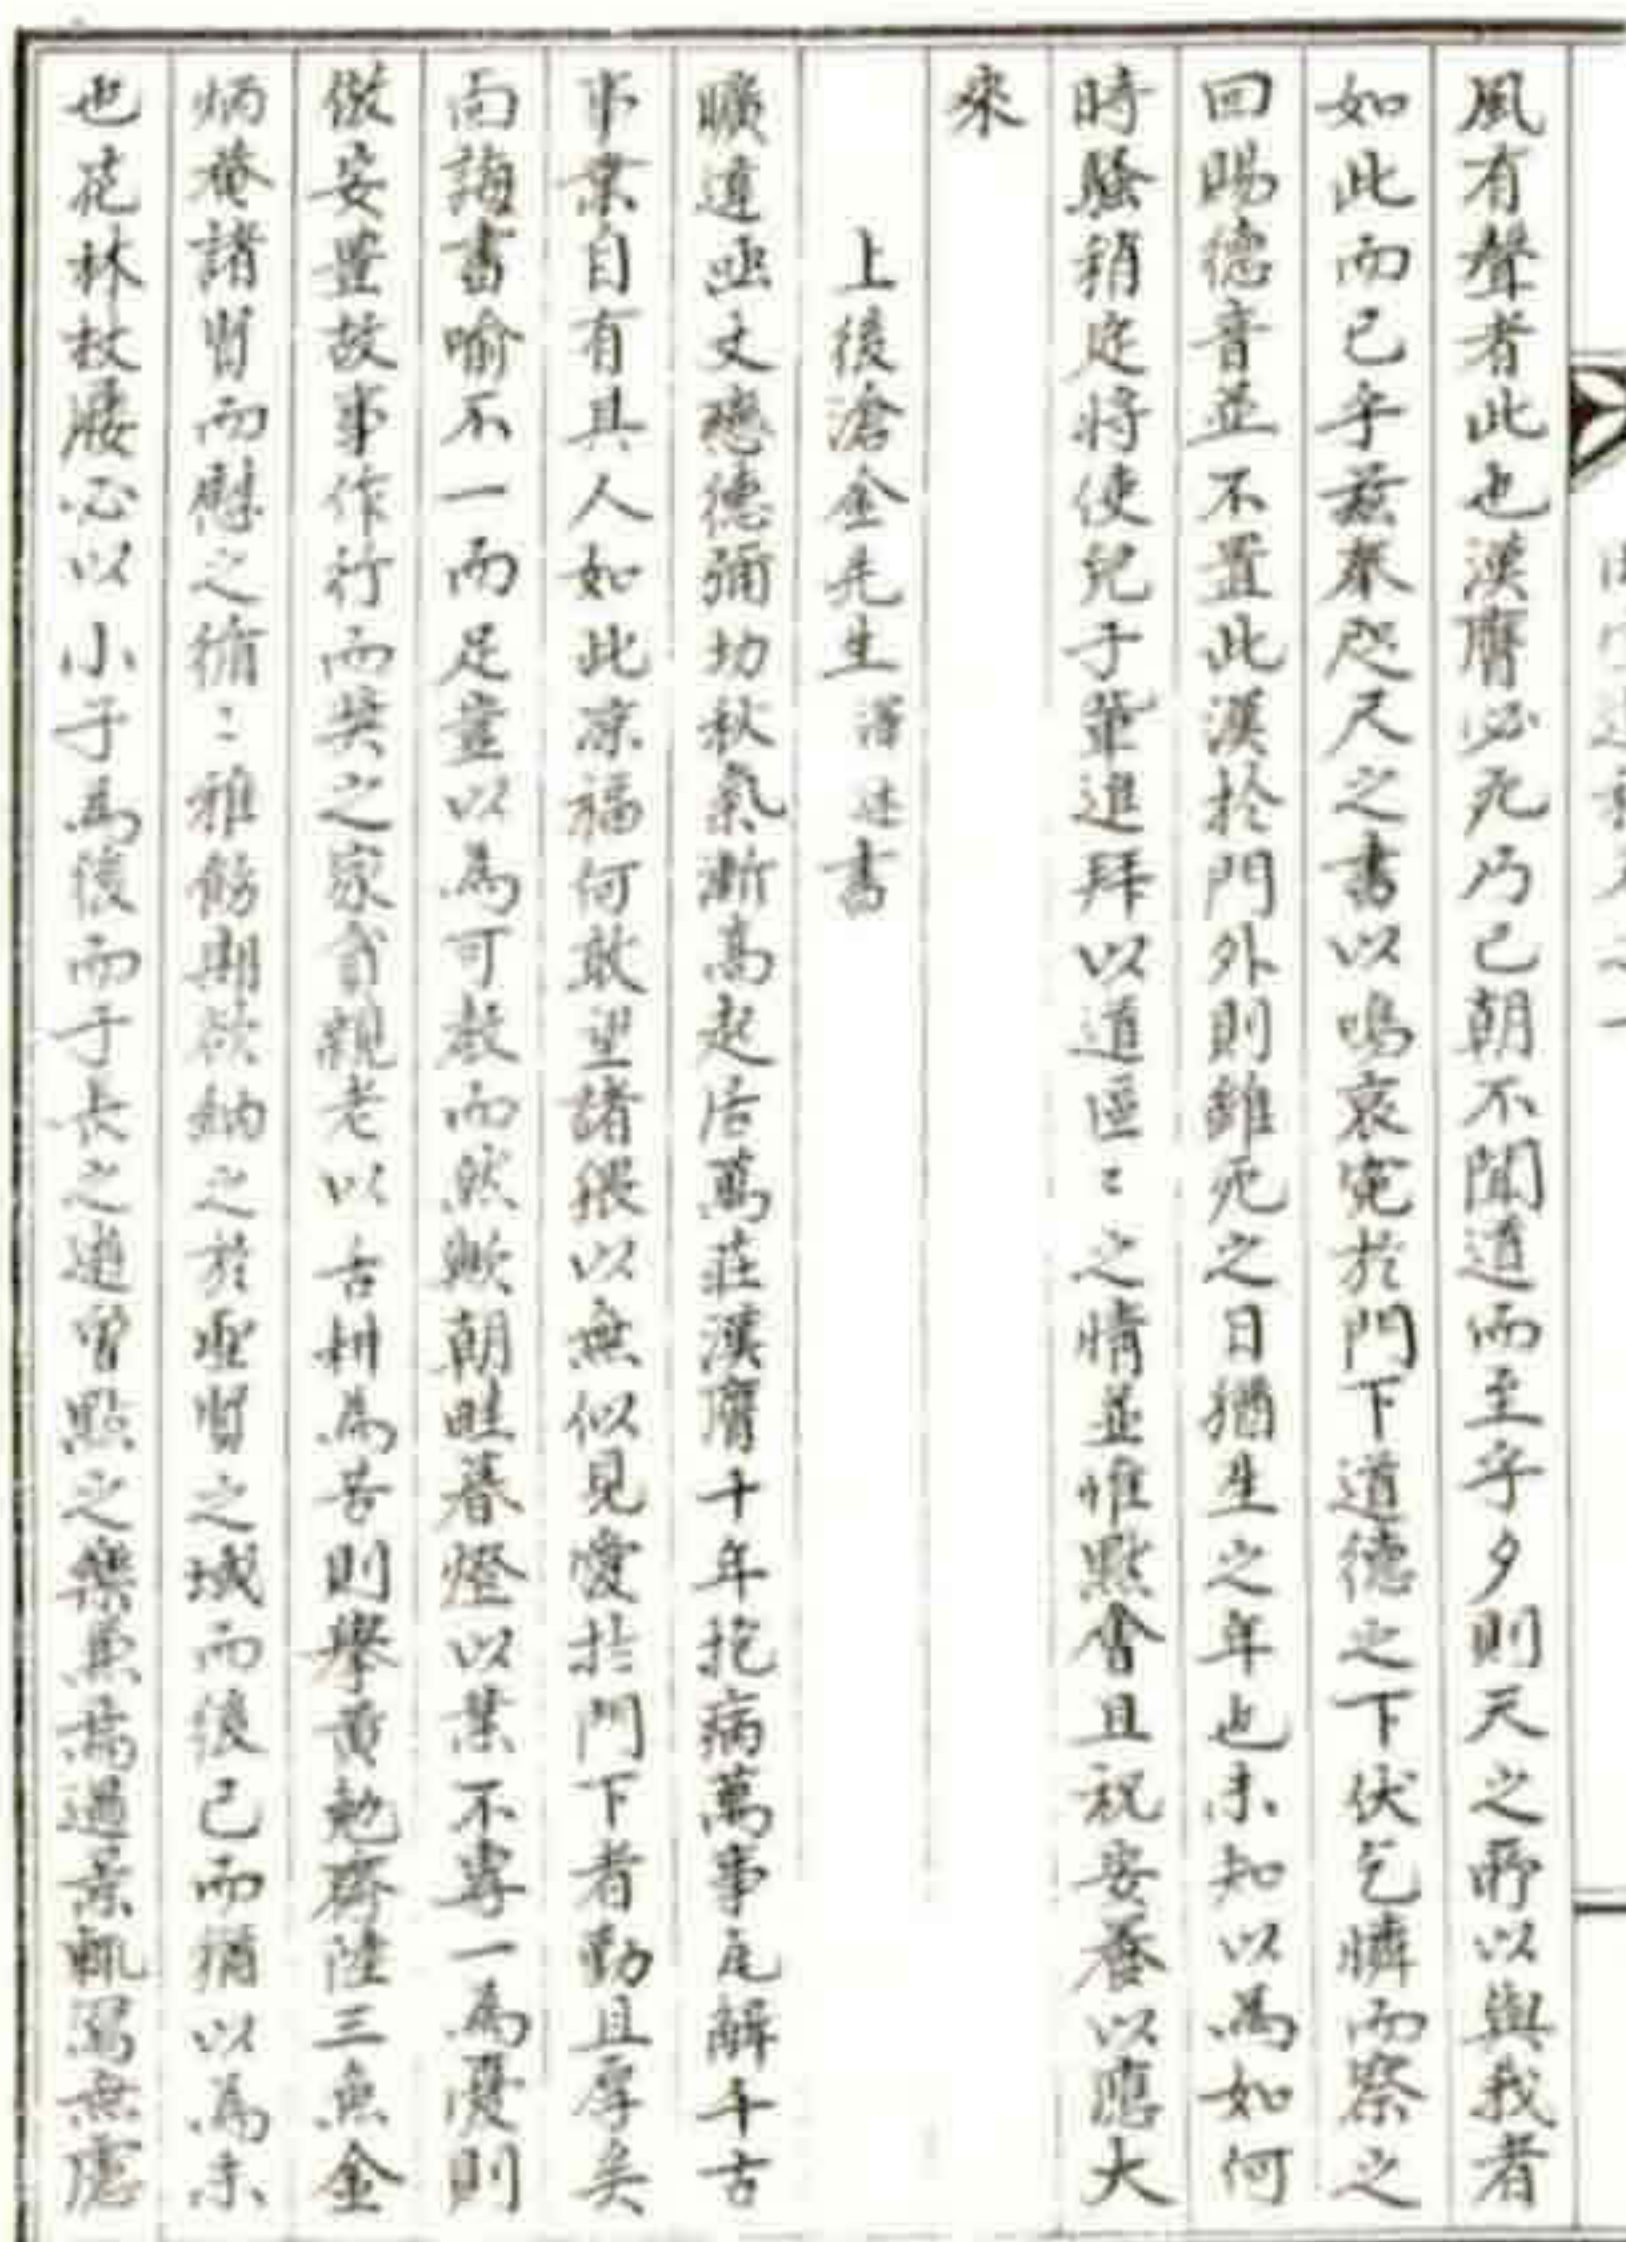 風有聲者此也漢膺必死乃已朝不聞道而至乎夕則天之所以與我者
如此而已乎茲奉咫尺之書以鳴哀寃於門下道德之下伏乞憐而察之
回賜德音並不置此漢於門外則雖死之日猶生之年也未知以為如何
時騷稍定將使兒子輩進拜以道區〻之情並惟默會且祝安養以應大
來
上後滄金先生澤述書
曠違函丈戀德彌切秋氣漸高起居萬莊漢膺十年抱病萬事瓦解千古
事業自有其人如此凉福何敢望諸猥以無似見愛於門下者勤且厚矣
面誨書喻不一而足豈以為可教而然歟朝畦暮燈以業不專一為憂則
做安豊故事作行而奬之家貧親老以古耕為苦則擧黃勉齋陸三魚金
炳菴諸賢而慰之循〻雅飭期欲納之於聖賢之域而後已而猶以為未
也花林杖屨必以小子為後而子長之遊曾點之樂無為過景輒寫無慮